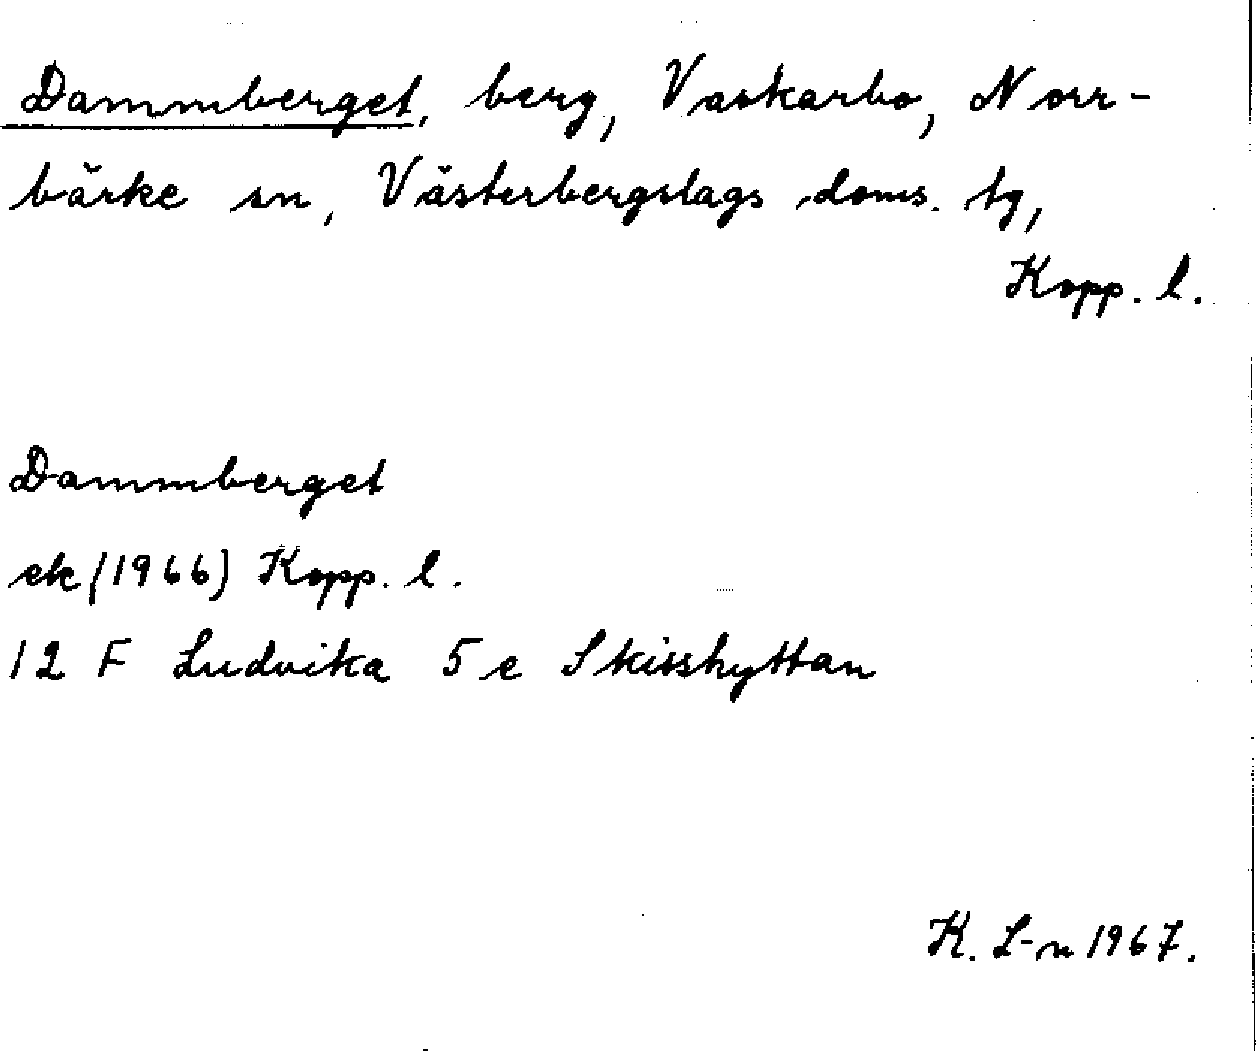 Dammberget, berg, Vaskarbo, Norr-
bärke sn, Västerbergslags doms. tg,
Kopp. l.
Dammberget
ek (1966) Kopp. l.
12 F Ludvika 5 e Skisshyttan
K. L-n 1967.